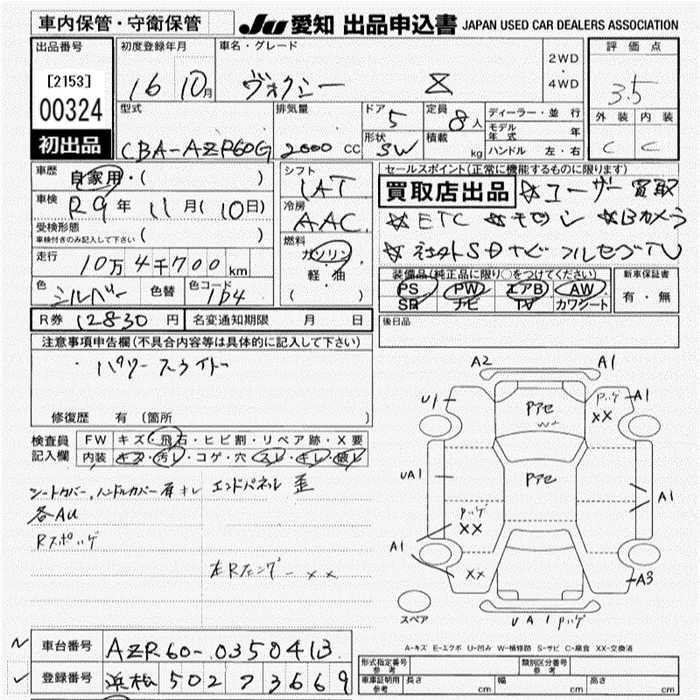 車内保管・守衛保管
JU 愛知 出品申込書 JAPAN USED CAR DEALERS ASSOCIATION
出品番号
[2153]
00324
初出品
初度登録年月
16 10月
車名・グレード
ヴォクシー Z
2WD
・
4WD
評価点
3.5
外装 内装
C C
型式
CBA-AZR60G
排気量
2000 CC
ドア 5
形状 SW
定員 8人
積載 kg
ディーラー・並行
モデル年式 年
ハンドル 左・右
車歴
自家用・( )
車検
R9年 11月(10日)
受検形態
車検付きのみ記入して下さい ( )
走行
10万4千700km
色
シルバー
色替
色コード
1D4
シフト
IAT
冷房
AAC
燃料
ガソリン
軽・油
( )
セールスポイント(正常に機能するものに限ります)
買取店出品 ☆ユーザー買取
☆ETC ☆キセノン ☆Bカメラ
☆社外SDナビフルセグTV
装備品(純正品に限り○をつけてください)
PS PW エアB AW
SR ナビ TV カワシート
新車保証書
有・無
R券 12830円
名変通知期限 月 日
後日品
注意事項申告欄(不具合内容等は具体的に記入して下さい)
・パワースライドー
修復歴 有 (箇所 )
検査員
記入欄
FW キズ・飛石・ヒビ割・リペア跡・X要
内装 キズ・汚レ・コゲ・穴・スレ・キレ・破レ
シートカバー,ハンドルカバー有 キレ エンドパネル 歪
各AU
Rスポハゲ
左Rフェンダー XX
A2 A1
U1 A1
Pハゲ
XX
Pアセ
W
UA1
Pアセ
A1
Pハゲ
XX
A1
XX
A3
スペア
UA1 Pハゲ
A-キズ E-エクボ U-凹み W-補修跡 S-サビ C-腐食 XX-交換済
車台番号 AZR60-0350413
登録番号 浜松 502 ヌ 3669
形式指定番号
参考
類別区分番号
参考
車庫証明用
参考
長さ cm 幅 cm 高さ cm